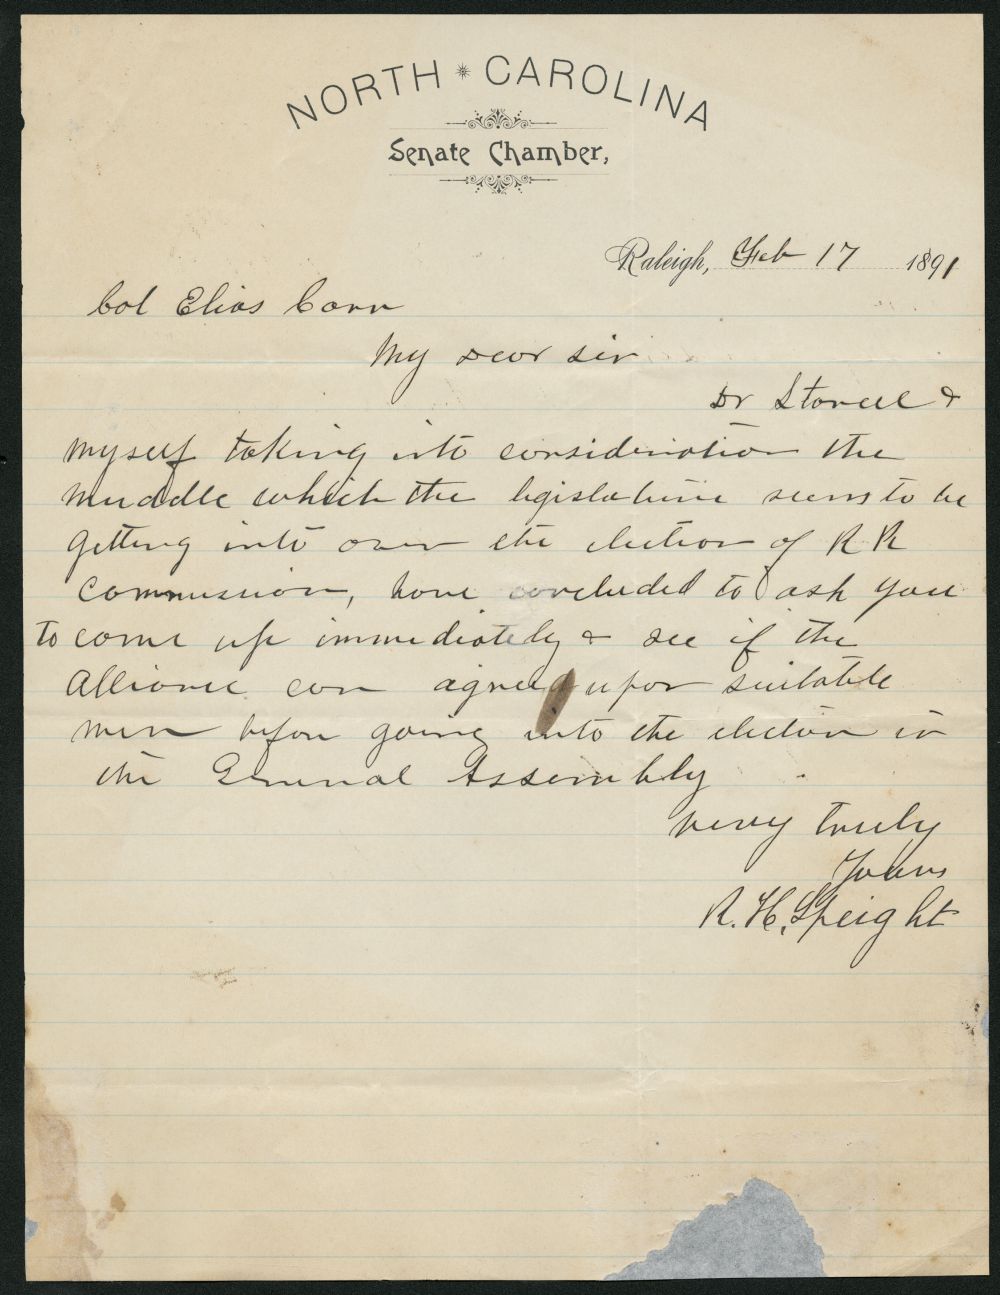 NORTH * CAROLINA
Senate Chamber,
Raleigh, Feb 17 1891
Col Elias Carr
My Dear Sir
Dr &
myself taking into consideration the
muddle which the legislature seems to be
getting into over the election of R R
Commission, have concluded to ask you
to come up immediately & see if the
Alliance can agree upon suitable
men before going into the election in
the General Assembly
Very truly
Yours
R. H. Speight